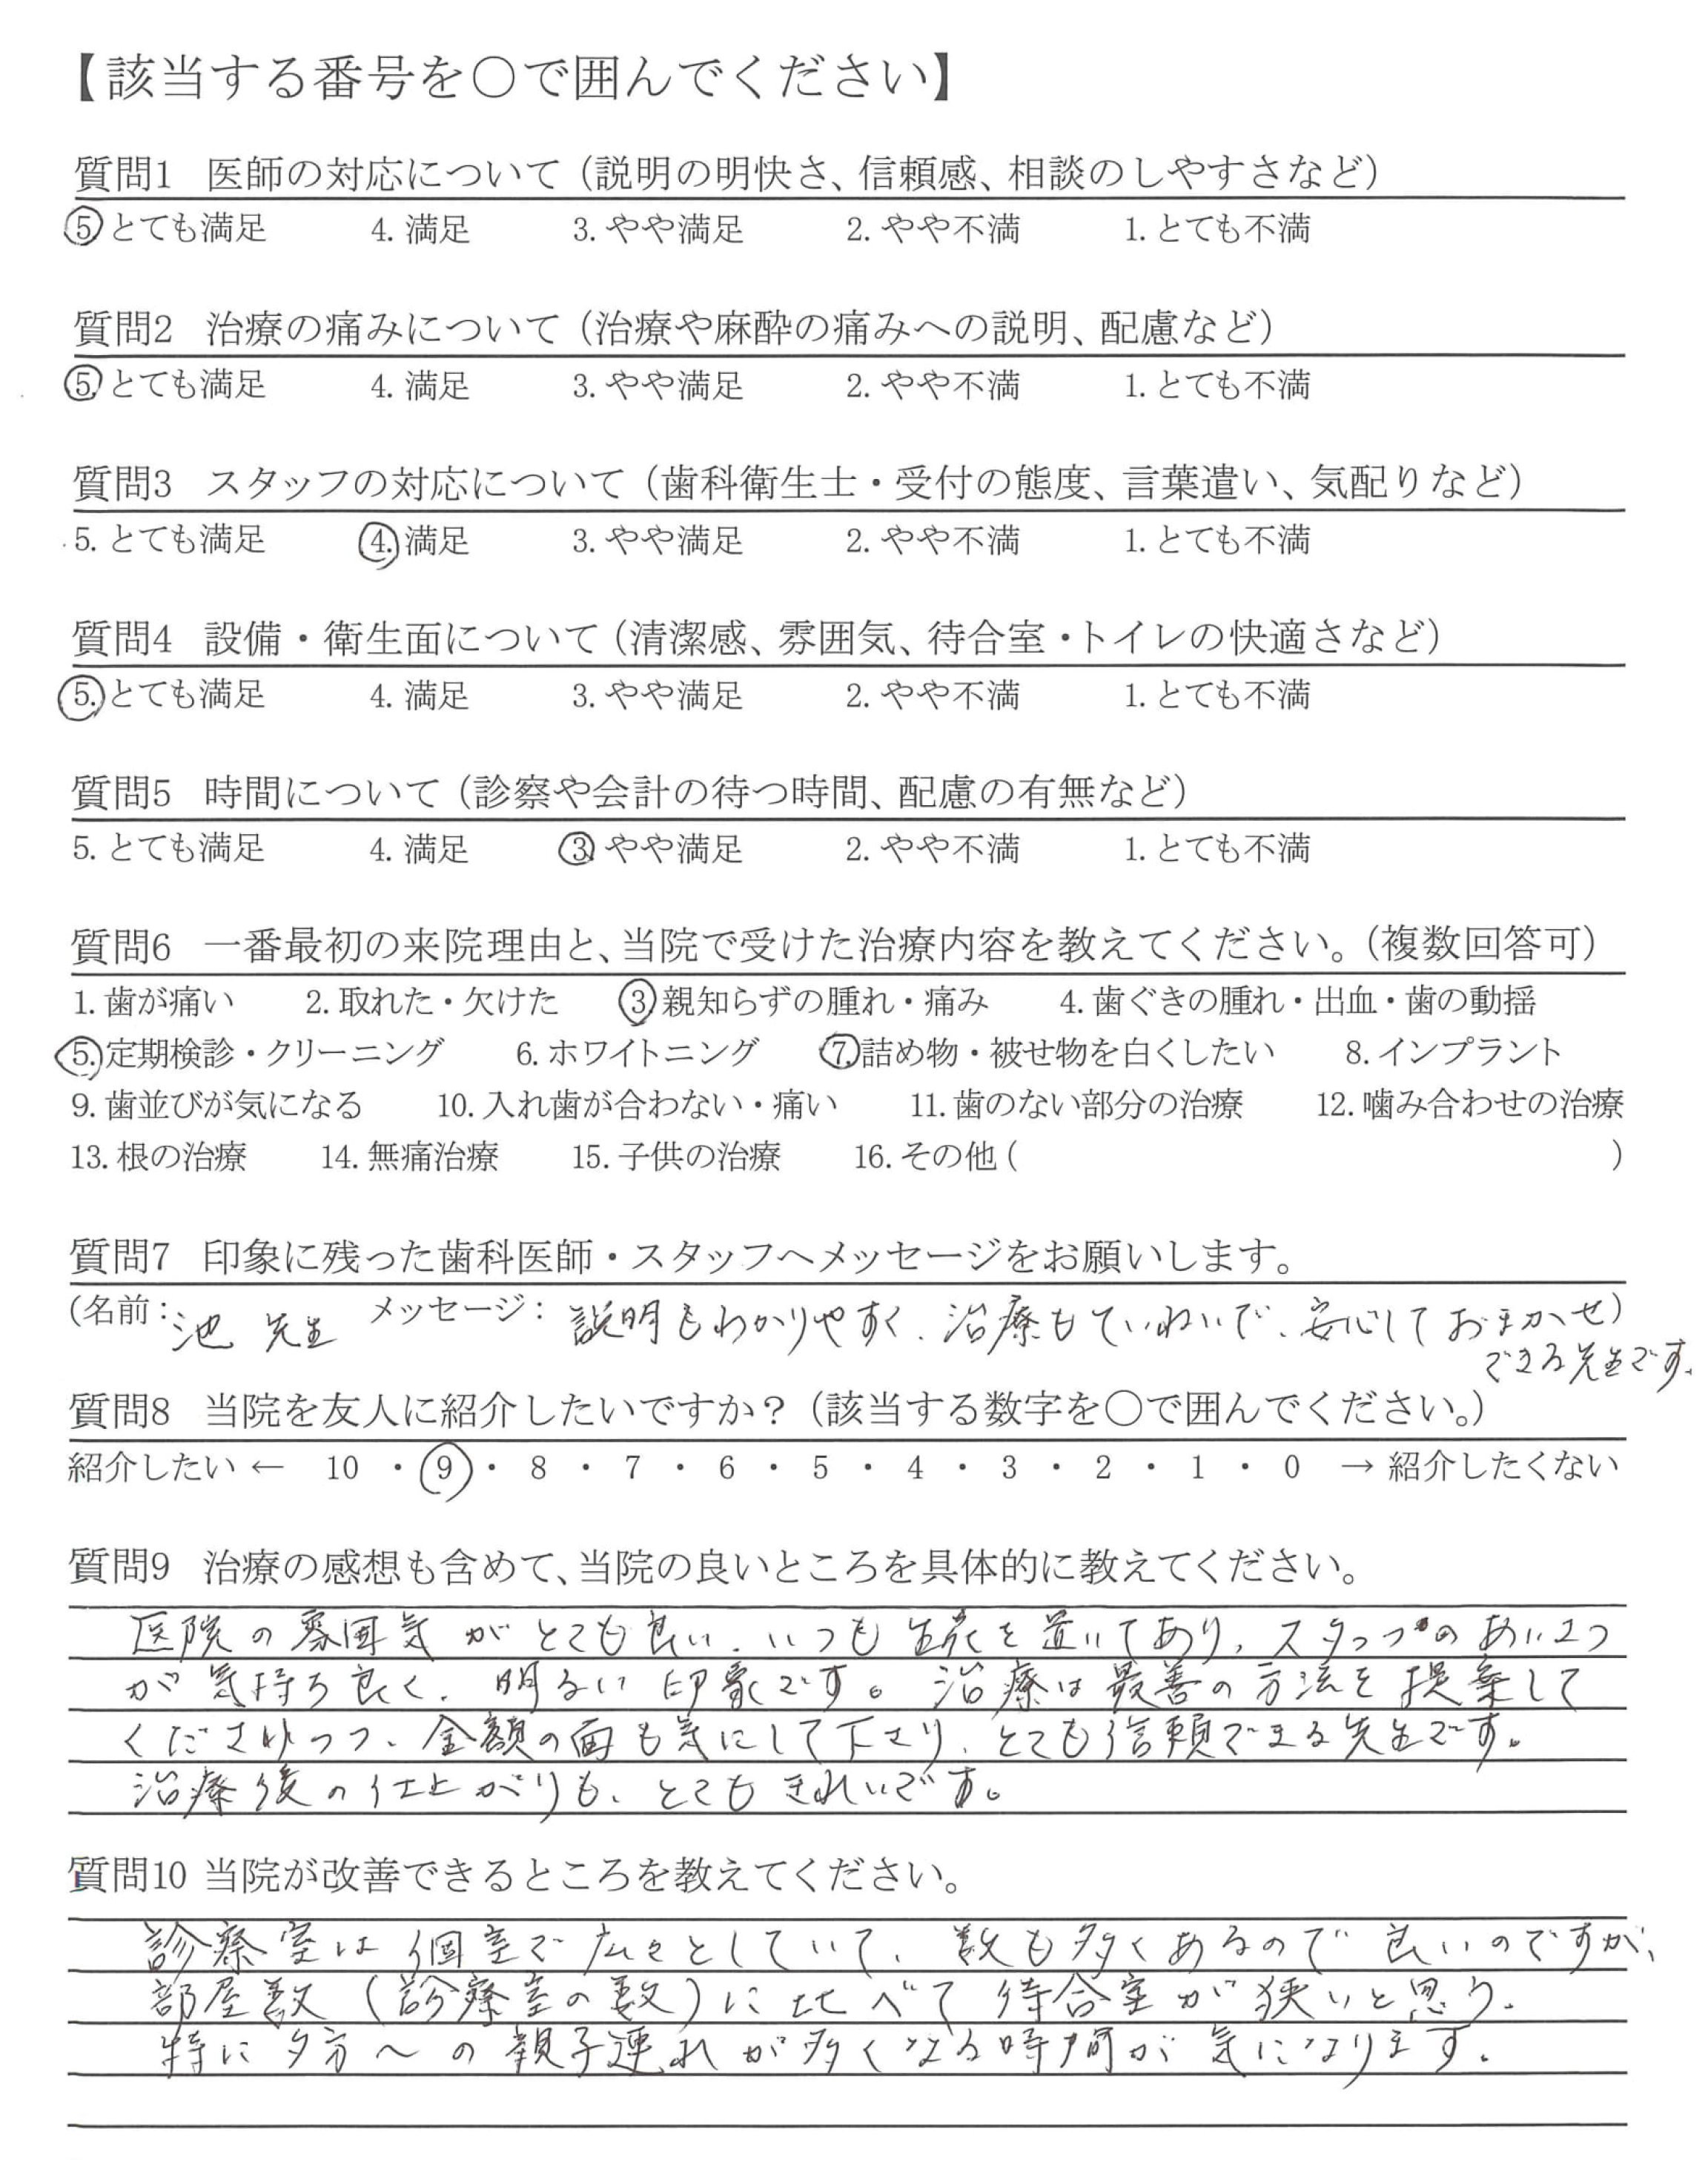 【該当する番号を〇で囲んでください】
質問1 医師の対応について（説明の明快さ、信頼感、相談のしやすさなど）
5 とても満足 4. 満足 3. やや満足 2. やや不満 1. とても不満
質問2 治療の痛みについて（治療や麻酔の痛みへの説明、配慮など）
5. とても満足 4. 満足 3. やや満足 2. やや不満 1. とても不満
質問3 スタッフの対応について（歯科衛生士・受付の態度、言葉遣い、気配りなど）
5. とても満足 4. 満足 3. やや満足 2. やや不満 1. とても不満
質問4 設備・衛生面について（清潔感、雰囲気、待合室・トイレの快適さなど）
5. とても満足 4. 満足 3. やや満足 2. やや不満 1. とても不満
質問5 時間について（診察や会計の待つ時間、配慮の有無など）
5. とても満足 4. 満足 3 やや満足 2. やや不満 1. とても不満
質問6 一番最初の来院理由と、当院で受けた治療内容を教えてください。（複数回答可）
1. 歯が痛い 2. 取れた・欠けた 3 親知らずの腫れ・痛み 4. 歯ぐきの腫れ・出血・歯の動揺
5. 定期検診・クリーニング 6. ホワイトニング 7. 詰め物・被せ物を白くしたい 8. インプラント
9. 歯並びが気になる 10. 入れ歯が合わない・痛い 11. 歯のない部分の治療 12. 噛み合わせの治療
13. 根の治療 14. 無痛治療 15. 子供の治療 16. その他 ( )
質問7 印象に残った歯科医師・スタッフへメッセージをお願いします。
(名前： 池 先生 メッセージ： 説明もわかりやすく、治療もていねいで、安心しておまかせ)
できる先生です。
質問8 当院を友人に紹介したいですか？（該当する数字を〇で囲んでください。）
紹介したい ← 10 ・ 9 ・ 8 ・ 7 ・ 6 ・ 5 ・ 4 ・ 3 ・ 2 ・ 1 ・ 0 → 紹介したくない
質問9 治療の感想も含めて、当院の良いところを具体的に教えてください。
医院の雰囲気がとても良い。いつも生花を置いてあり、スタッフのあいさつ
が気持ち良く、明るい印象です。治療は最善の方法を提案して
くださりつつ、金額の面も気にして下さり、とても信頼できる先生です。
治療後の仕上がりも、とてもきれいです。
質問10 当院が改善できるところを教えてください。
診療室は個室で広々としていて、数も多くあるので良いのですが、
部屋数（診療室の数）に比べて待合室が狭いと思う。
特に夕方〜の親子連れが多くなる時間が気になります。